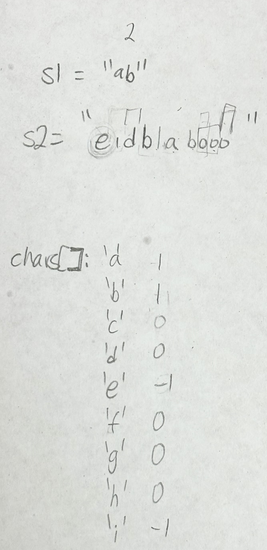 2
s1 = "ab"
s2 = "eidblabooo"
chars[]: 'a' 1
'b' 1
'c' 0
'd' 0
'e' -1
'f' 0
'g' 0
'h' 0
'i' -1